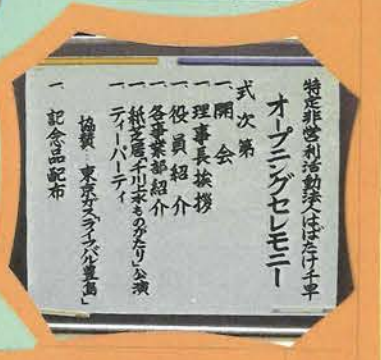 特定非営利活動法人はばたけ千早
オープニングセレモニー
式次第
一、開会
一、理事長挨拶
一、役員紹介
一、各事業部紹介
一、紙芝居「千川上水ものがたり」公演
一、ティーパーティ
協賛：東京ガスライフバル豊島」
一、記念品配布